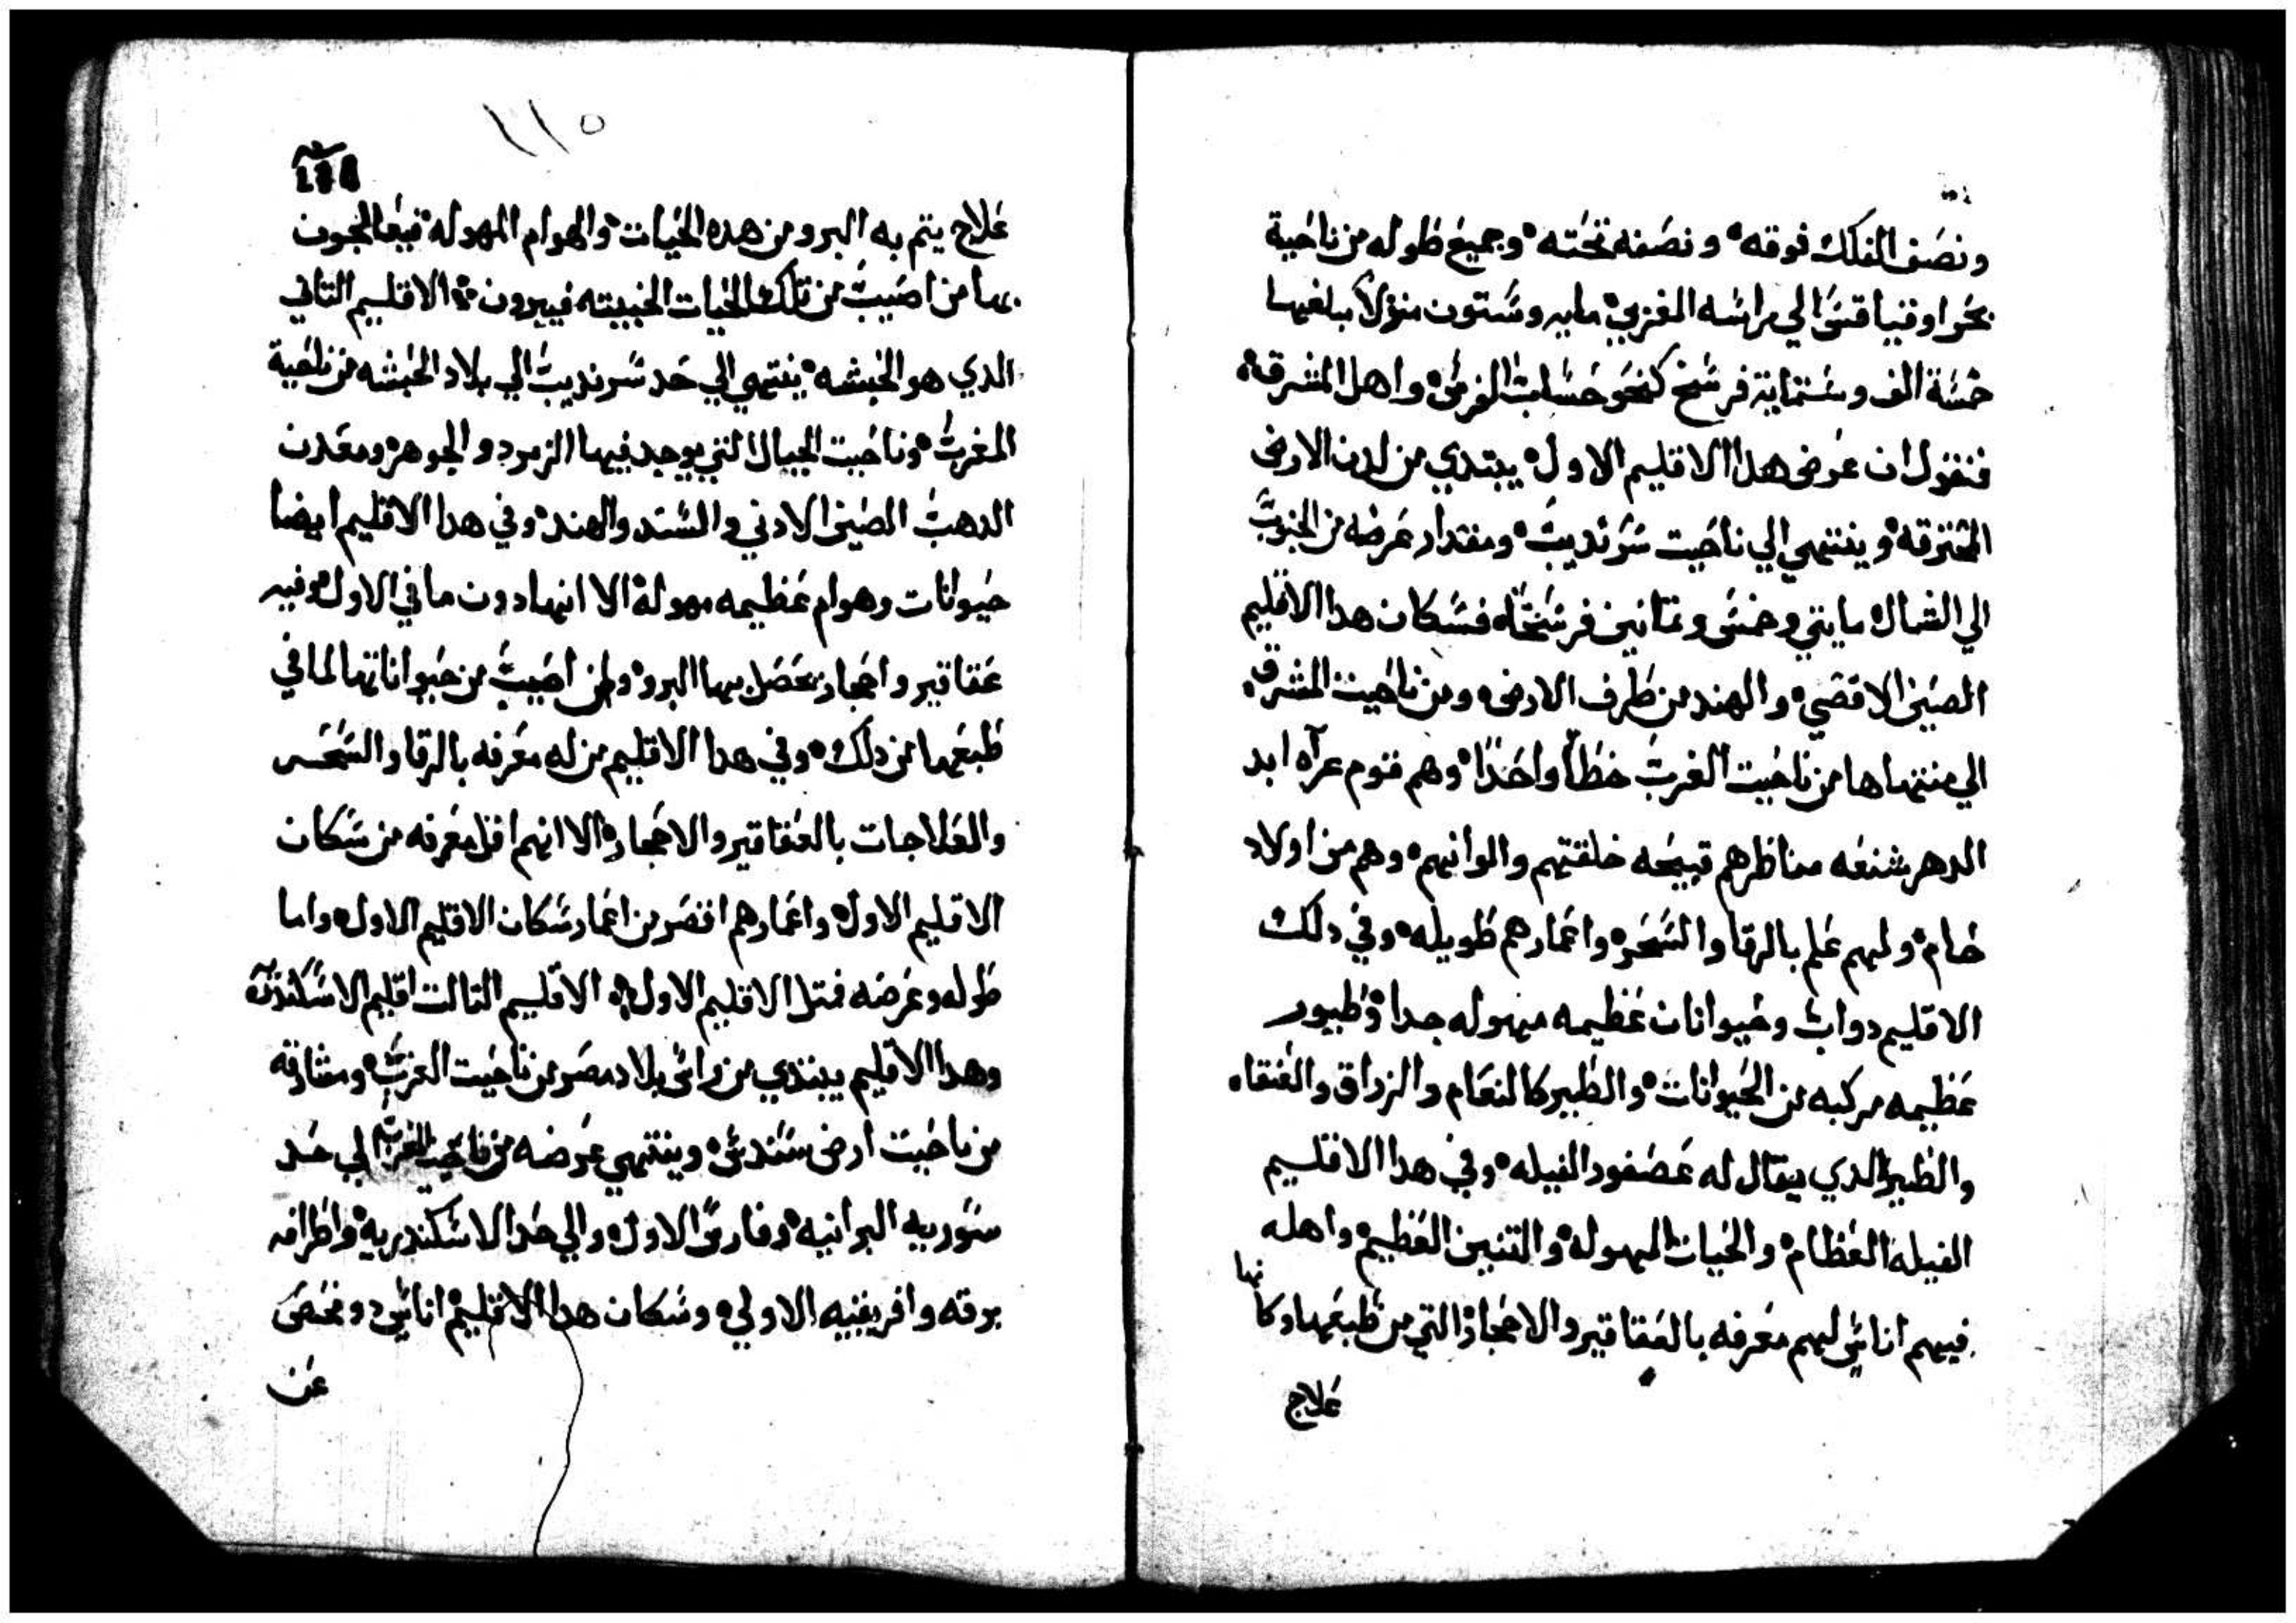 ونصف الفلك فوقه ونصفه تحته وجميع طوله من ناحية
بحر اوقنيا قس الي براسه الغربي مايه وستون منزلا مبلغها
خمسة الف وستماية فرسخ كنحو حساب الفرس واهل المشرق
فنقول ان عرض هدا الاقليم الاول يبتدي من لدن الارض
المحترقه وينتهي الي ناحيت سرنديب ومقدار عرضه من الجنوب
الي الشمال مايتي وخمس وتمانين فرسخا فسكان هدا الاقليم
الصين الاقصي والهند من طرف الارض ومن ناحيت المشرق
الي منتهاها من ناحيت الغرب خطا واحدا وهم قوم عراه ابد
الدهر شنعه مناظرهم قبيحه خلقتهم والوانهم وهم من اولاد
حام ولهم علم بالرقا والسحر واعمارهم طويله وفي دلك
الاقليم دواب وحيوانات عظيمه مهوله جدا وطيور
عظيمه مركبه من الحيوانات والطير كالنعام والزراق والعنقاه
والطير الدي يقال له عصفور الفيله وفي هدا الاقليم
الفيله العظام والحيات المهوله والتنين العظيم واهله
فيهم اناس لهم معرفه بالعقاقير والاحجار التي من طبعها وكانها
علاج
١١٥
علاج يتم به البرو من هده الحيات والهوام المهوله فيعالجون
بها من اصيب من تلك الحيات الخبيته فيبرون الاقليم التاني
الدي هو الحبشه ينتهي الي حد سرنديب الي بلاد الحبشه من ناحية
المغرب وناحيت الجبال التي يوجد فيها الزمرد والجوهر ومعدن
الدهب الصين الادني والسند والهند وفي هدا الاقليم ايضا
حيوانات وهوام عظيمه مهوله الا انها دون ما في الاول وفيه
عقاقير واحجار يحصل بها البرو ولمن اصيب من حيواناتها لما في
طبعها من دلك وفي هدا الاقليم من له معرفه بالرقا والسحر
والعلاجات بالعقاقير والاحجار الا انهم اقل معرفه من سكان
الاقليم الاول واعمارهم اقصر من اعمار سكان الاقليم الاول واما
طوله وعرضه فمتل الاقليم الاول الاقليم التالت اقليم الاسكندريه
وهدا الاقليم يبتدي من راس بلاد مصر من ناحيت الغرب ومشارقه
من ناحيت ارض سندس وينتهي عرضه من ناحيت الغرب الي حد
سوريه البرانيه وفارس الاول والي حد الاسكندريه واطرافه
برقه وافريقيه الاولي وسكان هدا الاقليم اناس دو فحص
عن